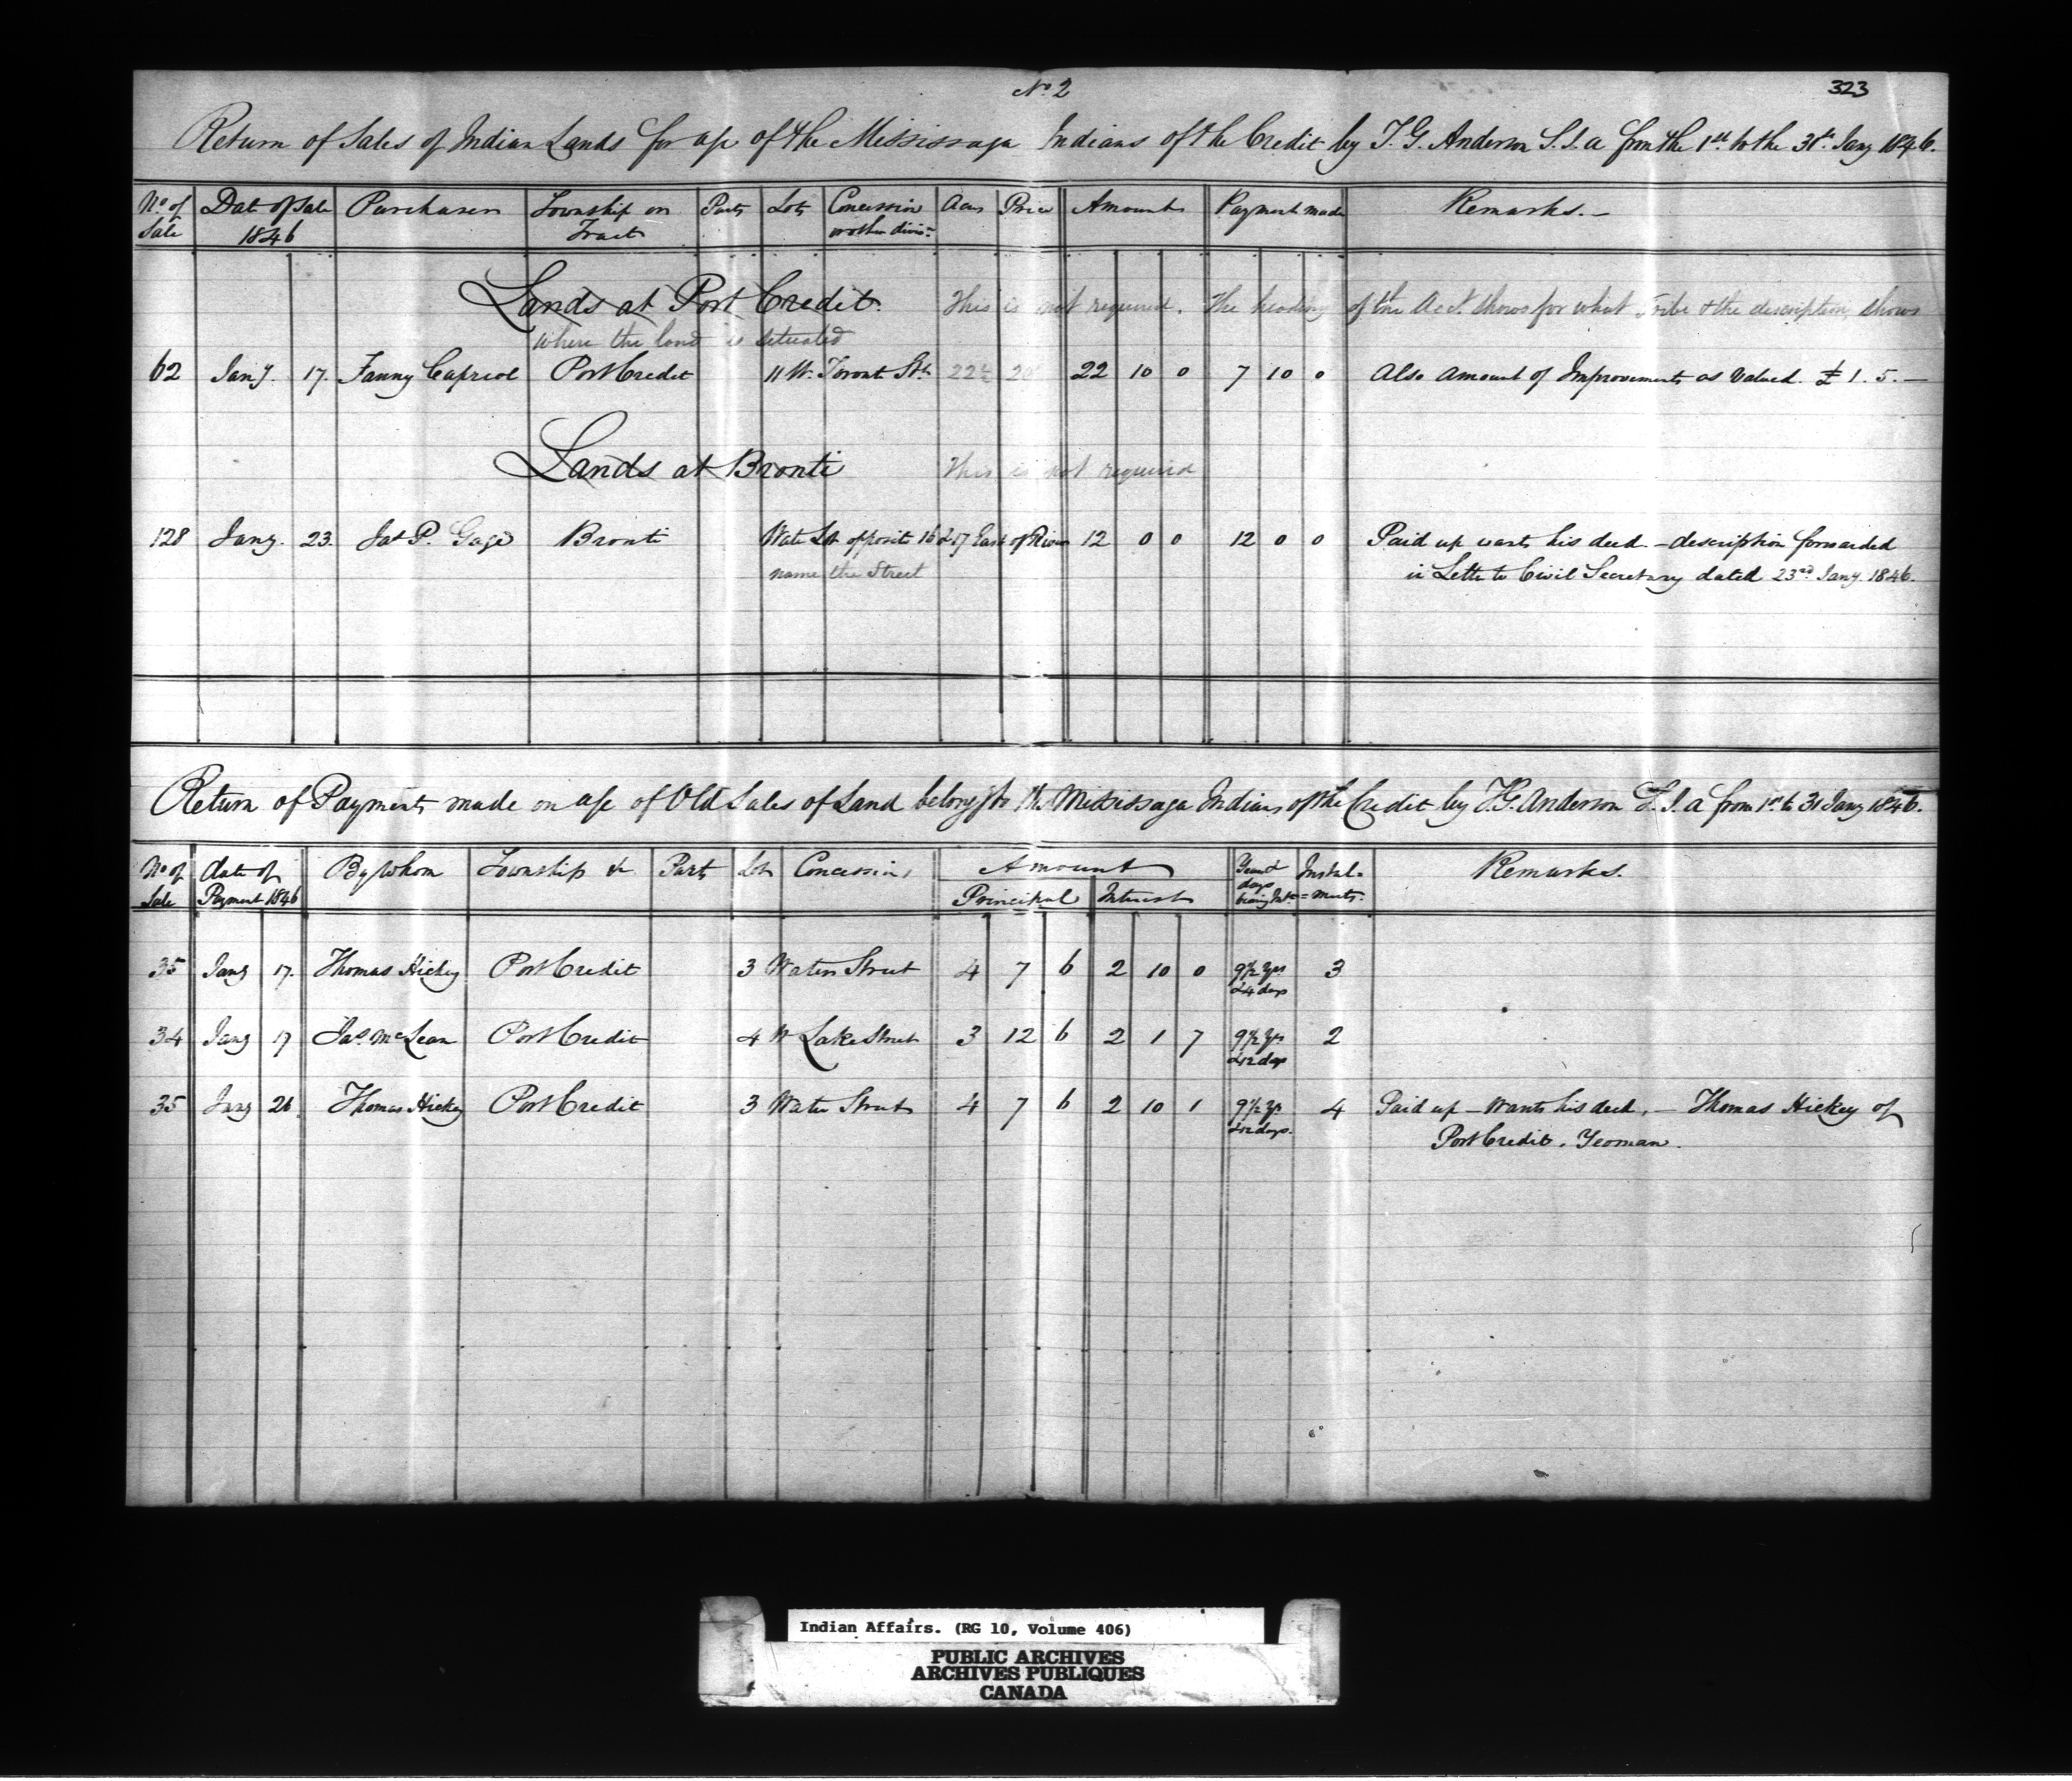 No. 2
323
Return of Sales of Indian Lands for a/c of the Mississaga Indians of the Credit by T. G. Anderson S. I. a from the 1st to the 31st Jany 1846.
No of Sale | Date of Sale 1846 | Purchaser | Township or Tract | Parts | Lots | Concession or other divisn | Acres | Price | Amount | Payment made | Remarks.—
Lands at Port Credit. This is not required. The heading of the Acct. shows for what Tribe & the description, shows
where the land is situated
62 Jany. 17. Fanny Capreol Port Credit 11 W. Toronto St. 22½ 20 22 10 0 7 10 0 Also amount of Improvements as Valued. £ 1. 5. —
Lands at Bronti This is not required
128 Jany. 23. Jas P. Gage Bronti Water Lot opposite 16 & 17 East of River 12 0 0 12 0 0 Paid up wants his deed. — description forwarded
name the Street in Letter to Civil Secretary dated 23rd Jany. 1846.
Return of Payments made on a/c of Old Sales of Land belongg to the Mississaga Indians of the Credit by T. G. Anderson S. I. a from 1st to 31 Jany 1846.
No of Sale | date of Payment 1846 | By Whom | Township &c | Parts | Lots | Concessions | Amount | Principal | Interest | Years & days being Intt | Instal=ments. | Remarks.
35 Jany 17. Thomas Hickey Port Credit 3 Water Street 4 7 6 2 10 0 9½ Yrs & 4 days 3
34 Jany 17 Jas. McLean Port Credit 4 W Lake Street 3 12 6 2 1 7 9½ Yrs & 12 days 2
35 Jany 26. Thomas Hickey Port Credit 3 Water Street 4 7 6 2 10 1 9½ Yrs & 12 days. 4 Paid up — Wants his deed, — Thomas Hickey of
Port Credit. Yeoman.
Indian Affairs. (RG 10, Volume 406)
PUBLIC ARCHIVES
ARCHIVES PUBLIQUES
CANADA